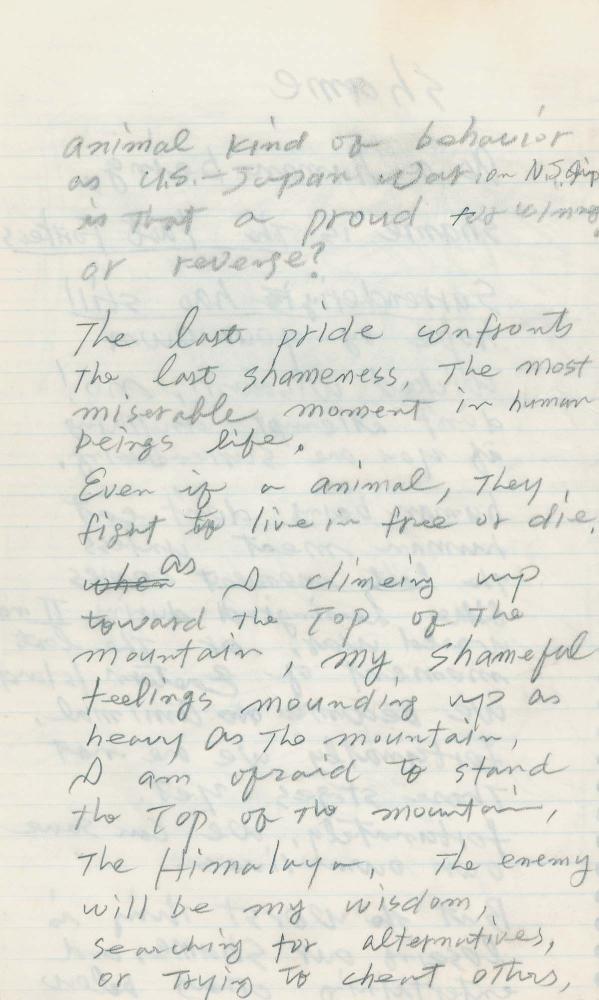 animal kind of behavior
as U.S.-Japan War, on N.S.
is that a proud
or revenge?
The last pride confronts
the last shameness, The most
miserable moment in human
beings life.
Even if a animal, they,
fight to live in free or die.
when as I climeing up
toward the Top of the
mountain, my shameful
feelings mounding up as
heavy as the mountain,
I am afraid to stand
the Top of the mountain,
The Himalaya, the enemy
will be my wisdom,
searching for alternatives,
or trying to cheat others,